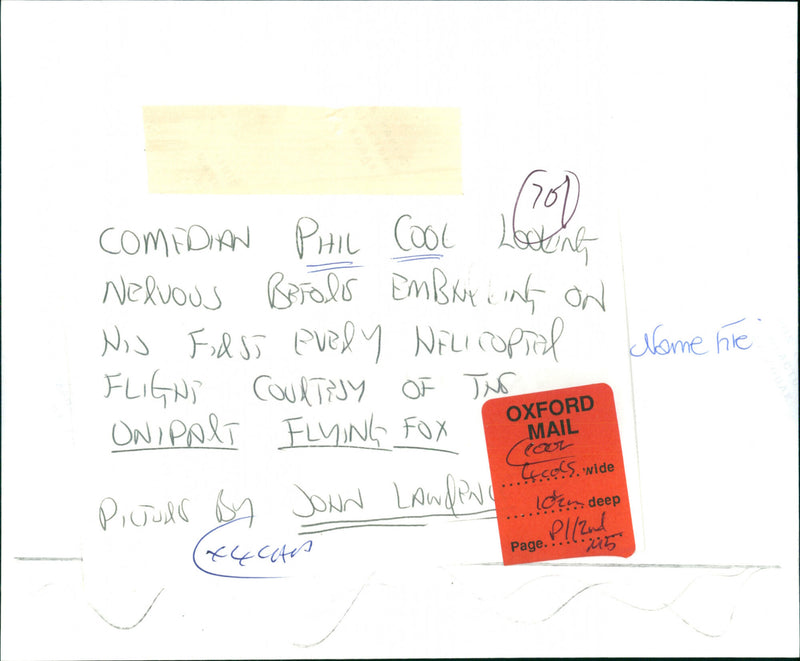 701
COMEDIAN PHIL COOL LOOKING
NERVOUS BEFORE EMBARKING ON
HIS FIRST EVERY HELICOPTER
FLIGHT COURTESY OF THE
UNIPART FLYING FOX
PICTURE BY JOHN LAWRENC
Name File
OXFORD
MAIL
cool
4 cols wide
10cm deep
Page P1/2nd